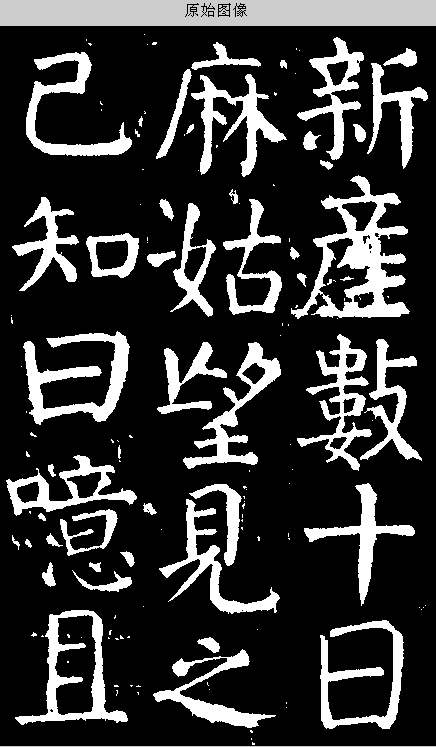 原始图像
新產數十日
麻姑望見之
已知曰噫且